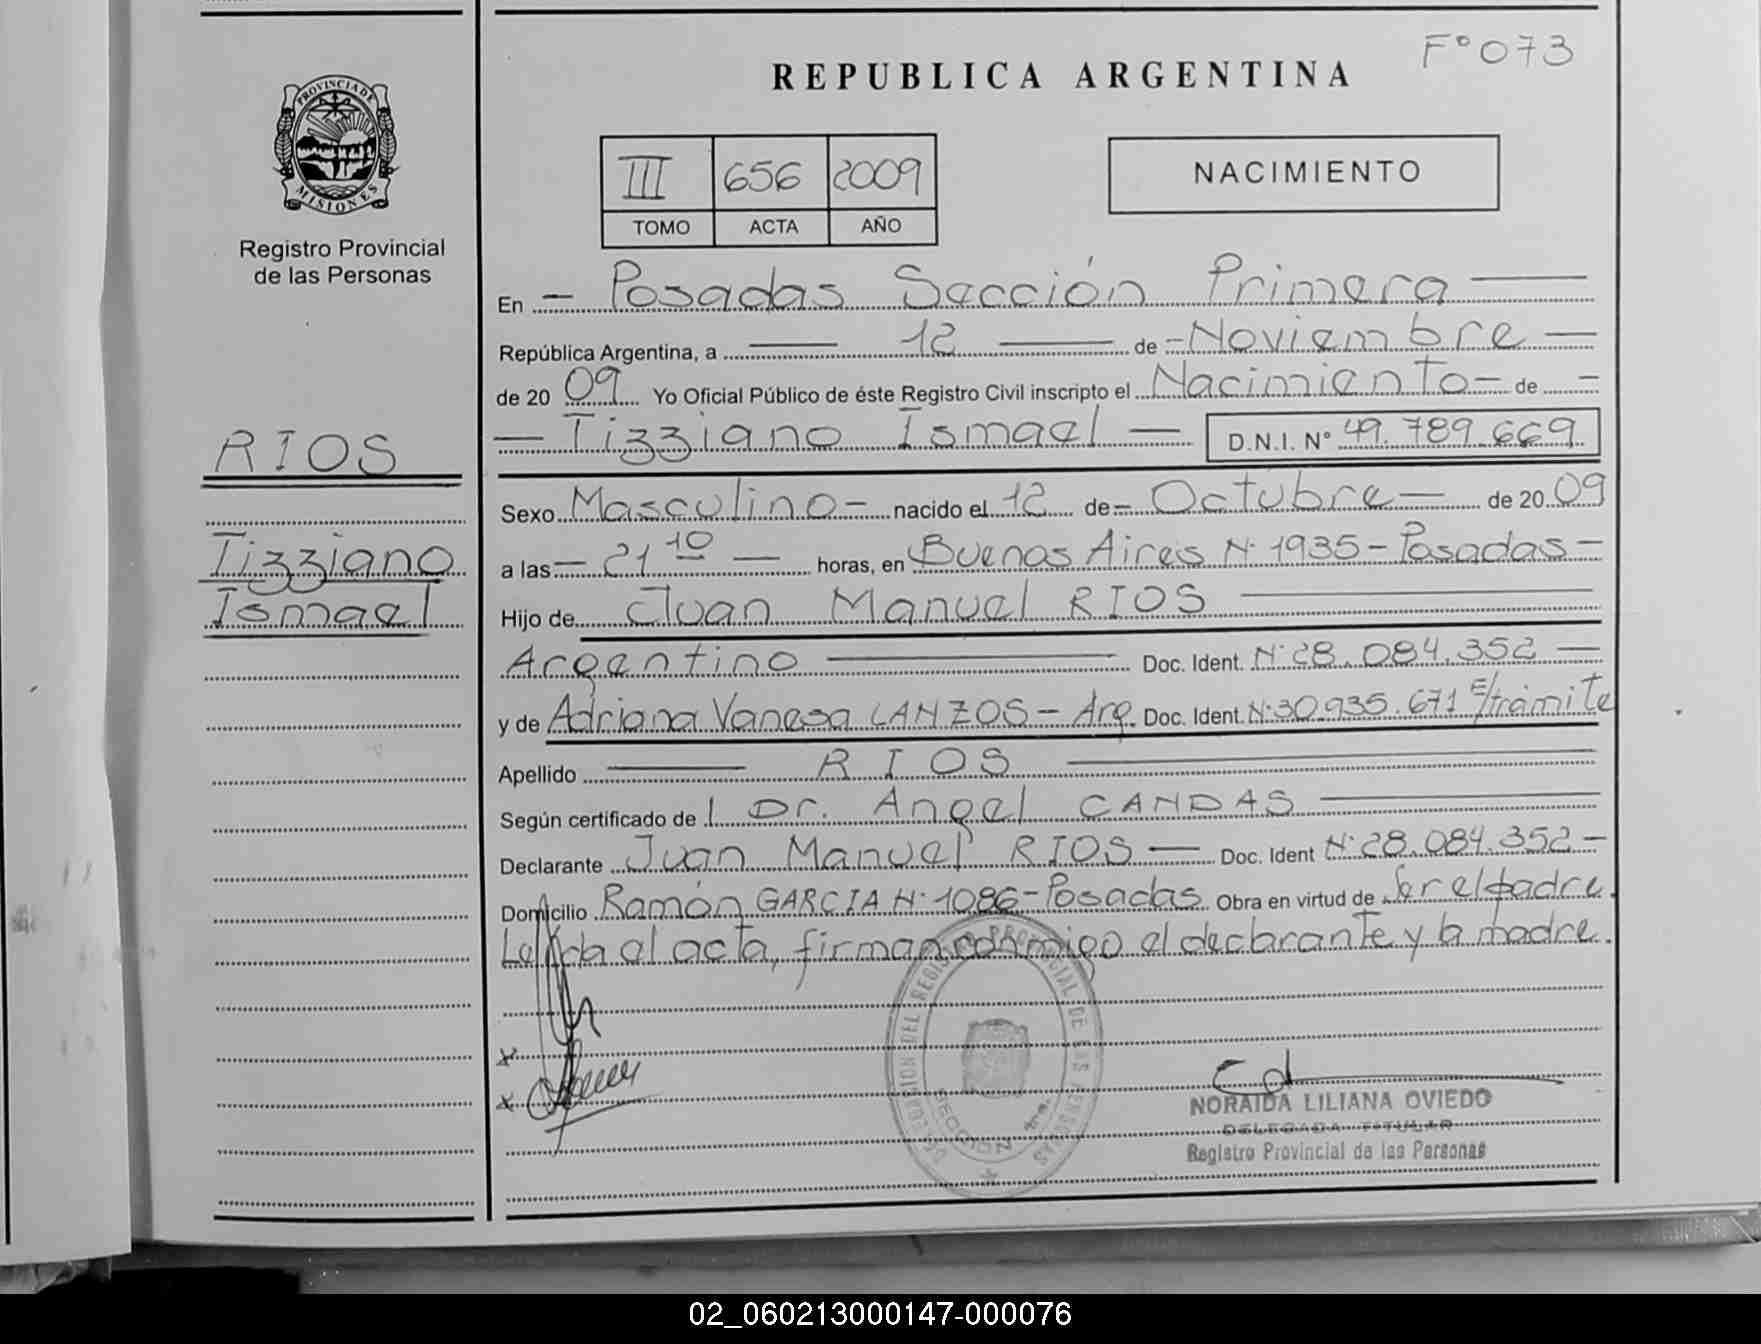 F° 073
REPUBLICA ARGENTINA
PROVINCIA DE
MISIONES
Registro Provincial
de las Personas
III 656 2009
TOMO ACTA AÑO
NACIMIENTO
En - Posadas Sección Primera
República Argentina, a 12 de - Noviembre
de 20 09 Yo Oficial Público de éste Registro Civil inscripto el Nacimiento - de -
RIOS
Tizziano Ismael D.N.I. N° 49.789.669
Sexo Masculino - nacido el 12 de - Octubre de 20 09
Tizziano
a las - 21 10 horas, en Buenos Aires N° 1935 - Posadas -
Ismael
Hijo de Juan Manuel RIOS
Argentino Doc. Ident. N° 28.084.352
y de Adriana Vanesa LANZOS - Arg. Doc. Ident. N° 30.935.671 E/trámite
Apellido RIOS
Según certificado de l Dr. Angel CANDAS
Declarante Juan Manuel RIOS Doc. Ident N° 28.084.352 -
Domicilio Ramón GARCIA N° 1086 - Posadas Obra en virtud de Ser el padre.
Leída el acta, firman conmigo el declarante y la madre.
DELEGACION DEL REGISTRO PROVINCIAL DE LAS PERSONAS
SECCION 1ra.
x
x
NORAIDA LILIANA OVIEDO
DELEGADA TITULAR
Registro Provincial de las Personas
02_060213000147-000076